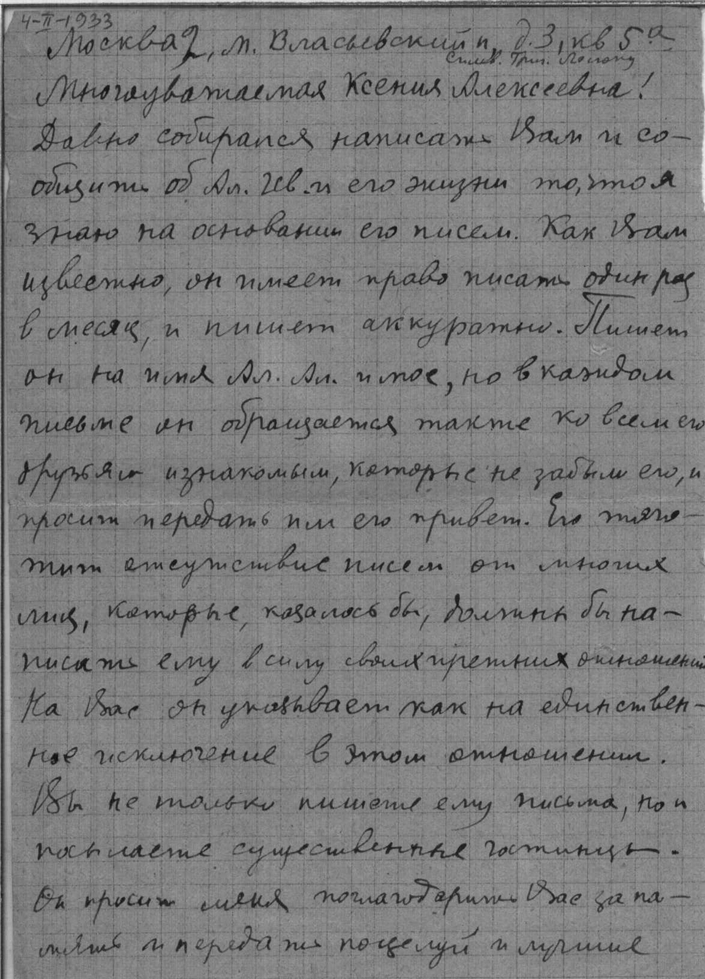 4-II-1933
Москва 2, м. Власьевский п, д.3, кв 5а
Григ.
Многоуважаемая Ксения Алексеевна!
Давно собирался написать Вам и со-
общить об Ал. Ив. и его жизни то, что я
знаю на основании его писем. Как Вам
известно, он имеет право писать один раз
в месяц, и пишет аккуратно. Пишет
он на имя Ал. Ал. и мое, но в каждом
письме он обращается также ко всем его
друзьям и знакомым, которые не забыли его, и
просит передать им его привет. Его тяго-
тит отсутствие писем от многих
лиц, которые, казалось бы, должны бы на-
писать ему в силу своих прежних отношений
На Вас он указывает как на единствен-
ное исключение в этом отношении.
Вы не только пишете ему письма, но и
посылаете существенные гостинцы.
Он просит меня поблагодарить Вас за па-
мять и передать поцелуй и лучшие